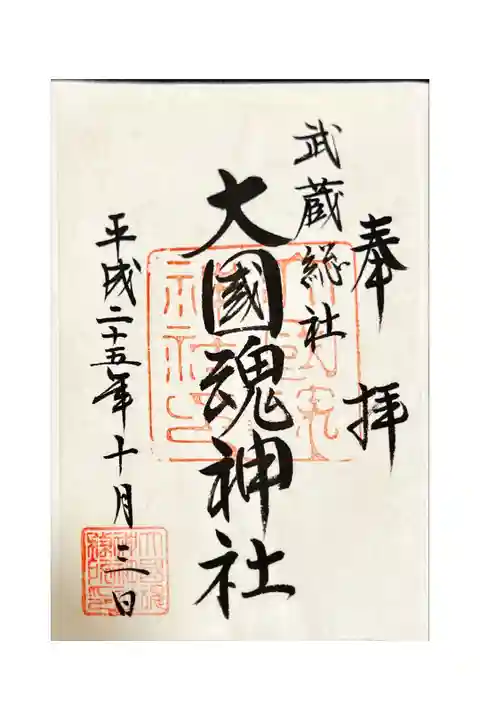 奉拝
武蔵総社
大國魂神社
平成二十五年十月三日